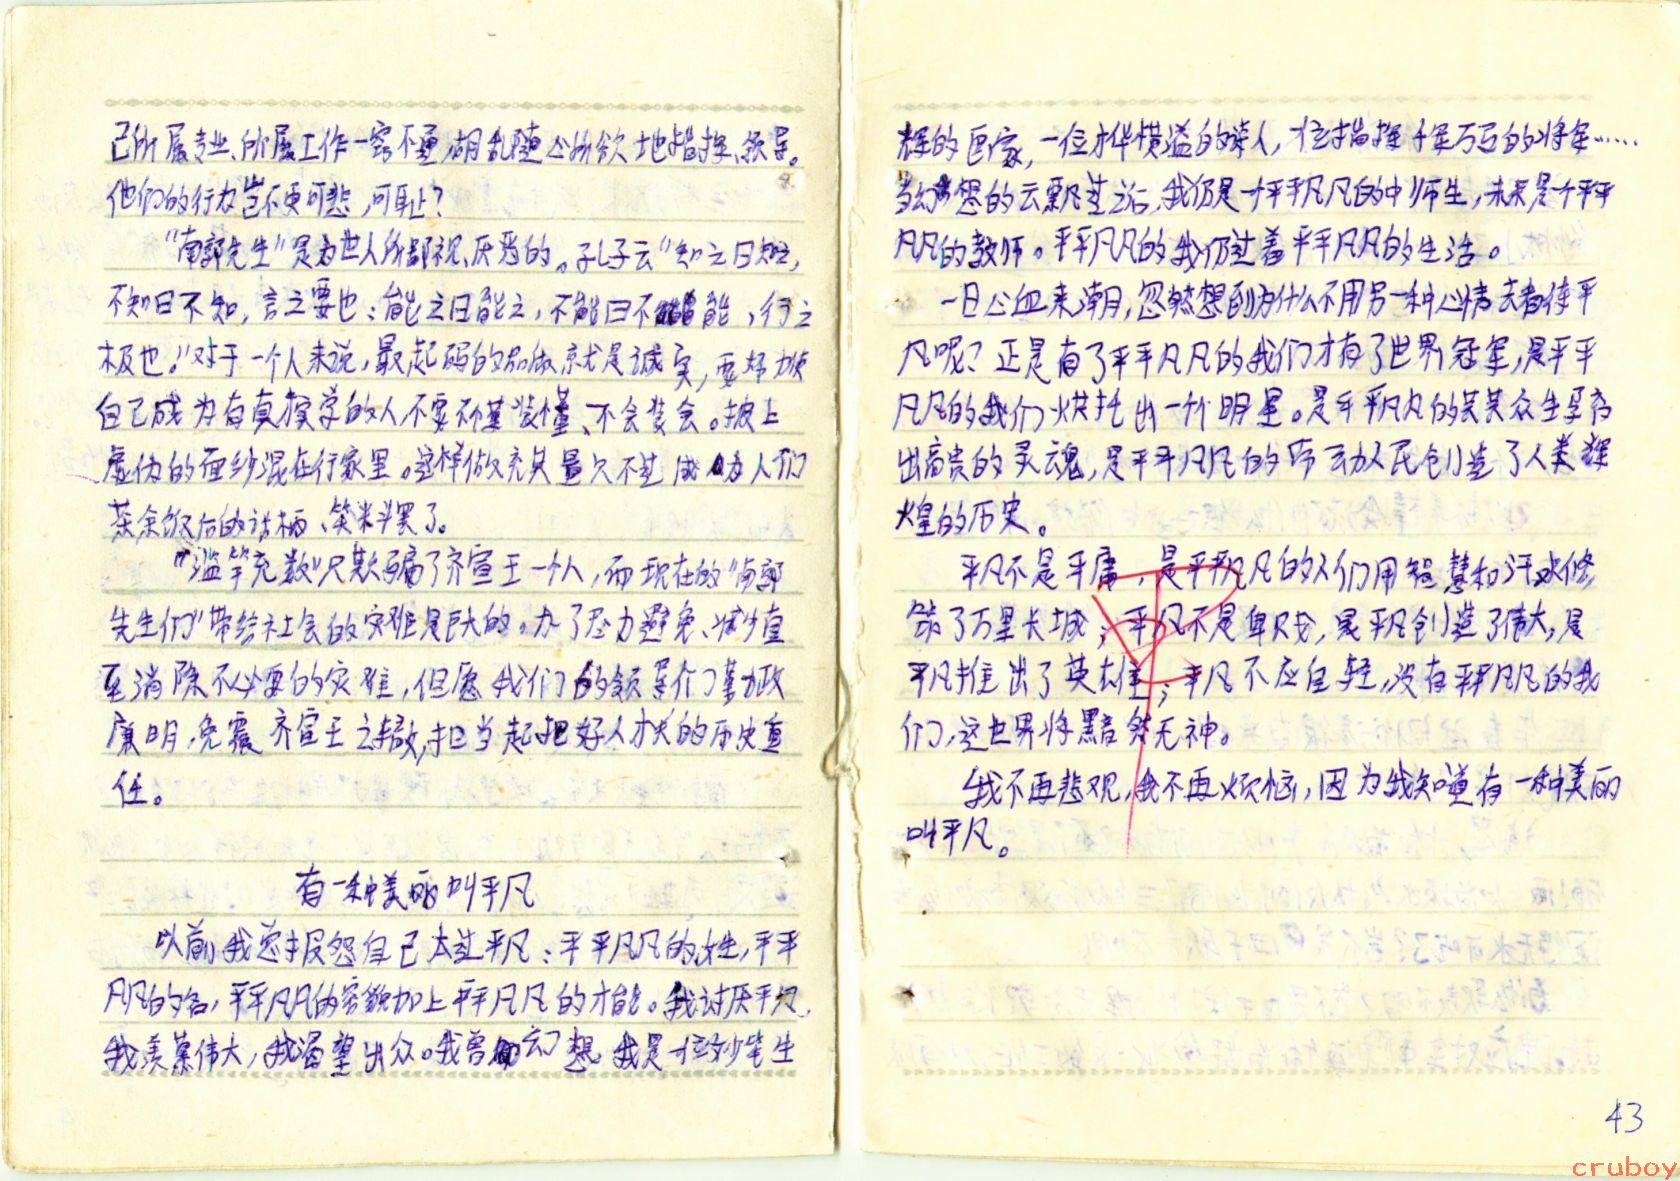 己所属专业、所属工作一窍不通,胡乱随心所欲地指挥、领导。
他们的行为岂不更可悲,可耻?
“南郭先生”是为世人所鄙视、厌恶的。孔子云“知之曰知之,
不知曰不知,言之要也;能之曰能之,不能曰不能,行之
极也!”对于一个人来说,最起码的就是诚实,要努力使
自己成为有真才实学的人,不要不懂装懂、不会装会。披上
虚伪的面纱混在行家里。这样做充其量只不过成为人们
茶余饭后的话柄、笑料罢了。
“滥竽充数”只欺骗了齐宣王一个人,而现在的“南郭
先生们”带给社会的灾难是巨大的。为了尽力避免、减少直
至消除不必要的灾难,但愿我们的领导们勤政
廉明,免震齐宣王之辙,担当起把好人才关的历史重
任。
有一种美丽叫平凡
以前,我总报怨自己太过平凡:平平凡凡的姓,平平
凡凡的名,平平凡凡的容貌加上平平凡凡的才能。我讨厌平凡,
我羡慕伟大,我渴望出众。我曾幻想我是一位妙笔生
辉的画家,一位才华横溢的诗人,一位指挥千军万马的将军……
当幻想的云飘过之后,我仍是一个平平凡凡的中师生,未来是一个平平
凡凡的教师。平平凡凡的我仍过着平平凡凡的生活。
一日心血来潮,忽然想到为什么不用另一种心情去看待平
凡呢?正是有了平平凡凡的我们才有了世界冠军,是平平
凡凡的我们烘托出一个个明星。是平平凡凡的芸芸众生孕育
出高贵的灵魂,是平平凡凡的劳动人民创造了人类辉
煌的历史。
平凡不是平庸,是平平凡凡的人们用智慧和汗水修
筑了万里长城;平凡不是卑贱,是平凡创造了伟大,是
平凡推出了英雄;平凡不应自轻,没有平平凡凡的我
们,这世界将黯然无神。
我不再悲观,我不再烦恼,因为我知道有一种美丽
叫平凡。
43
cruboy